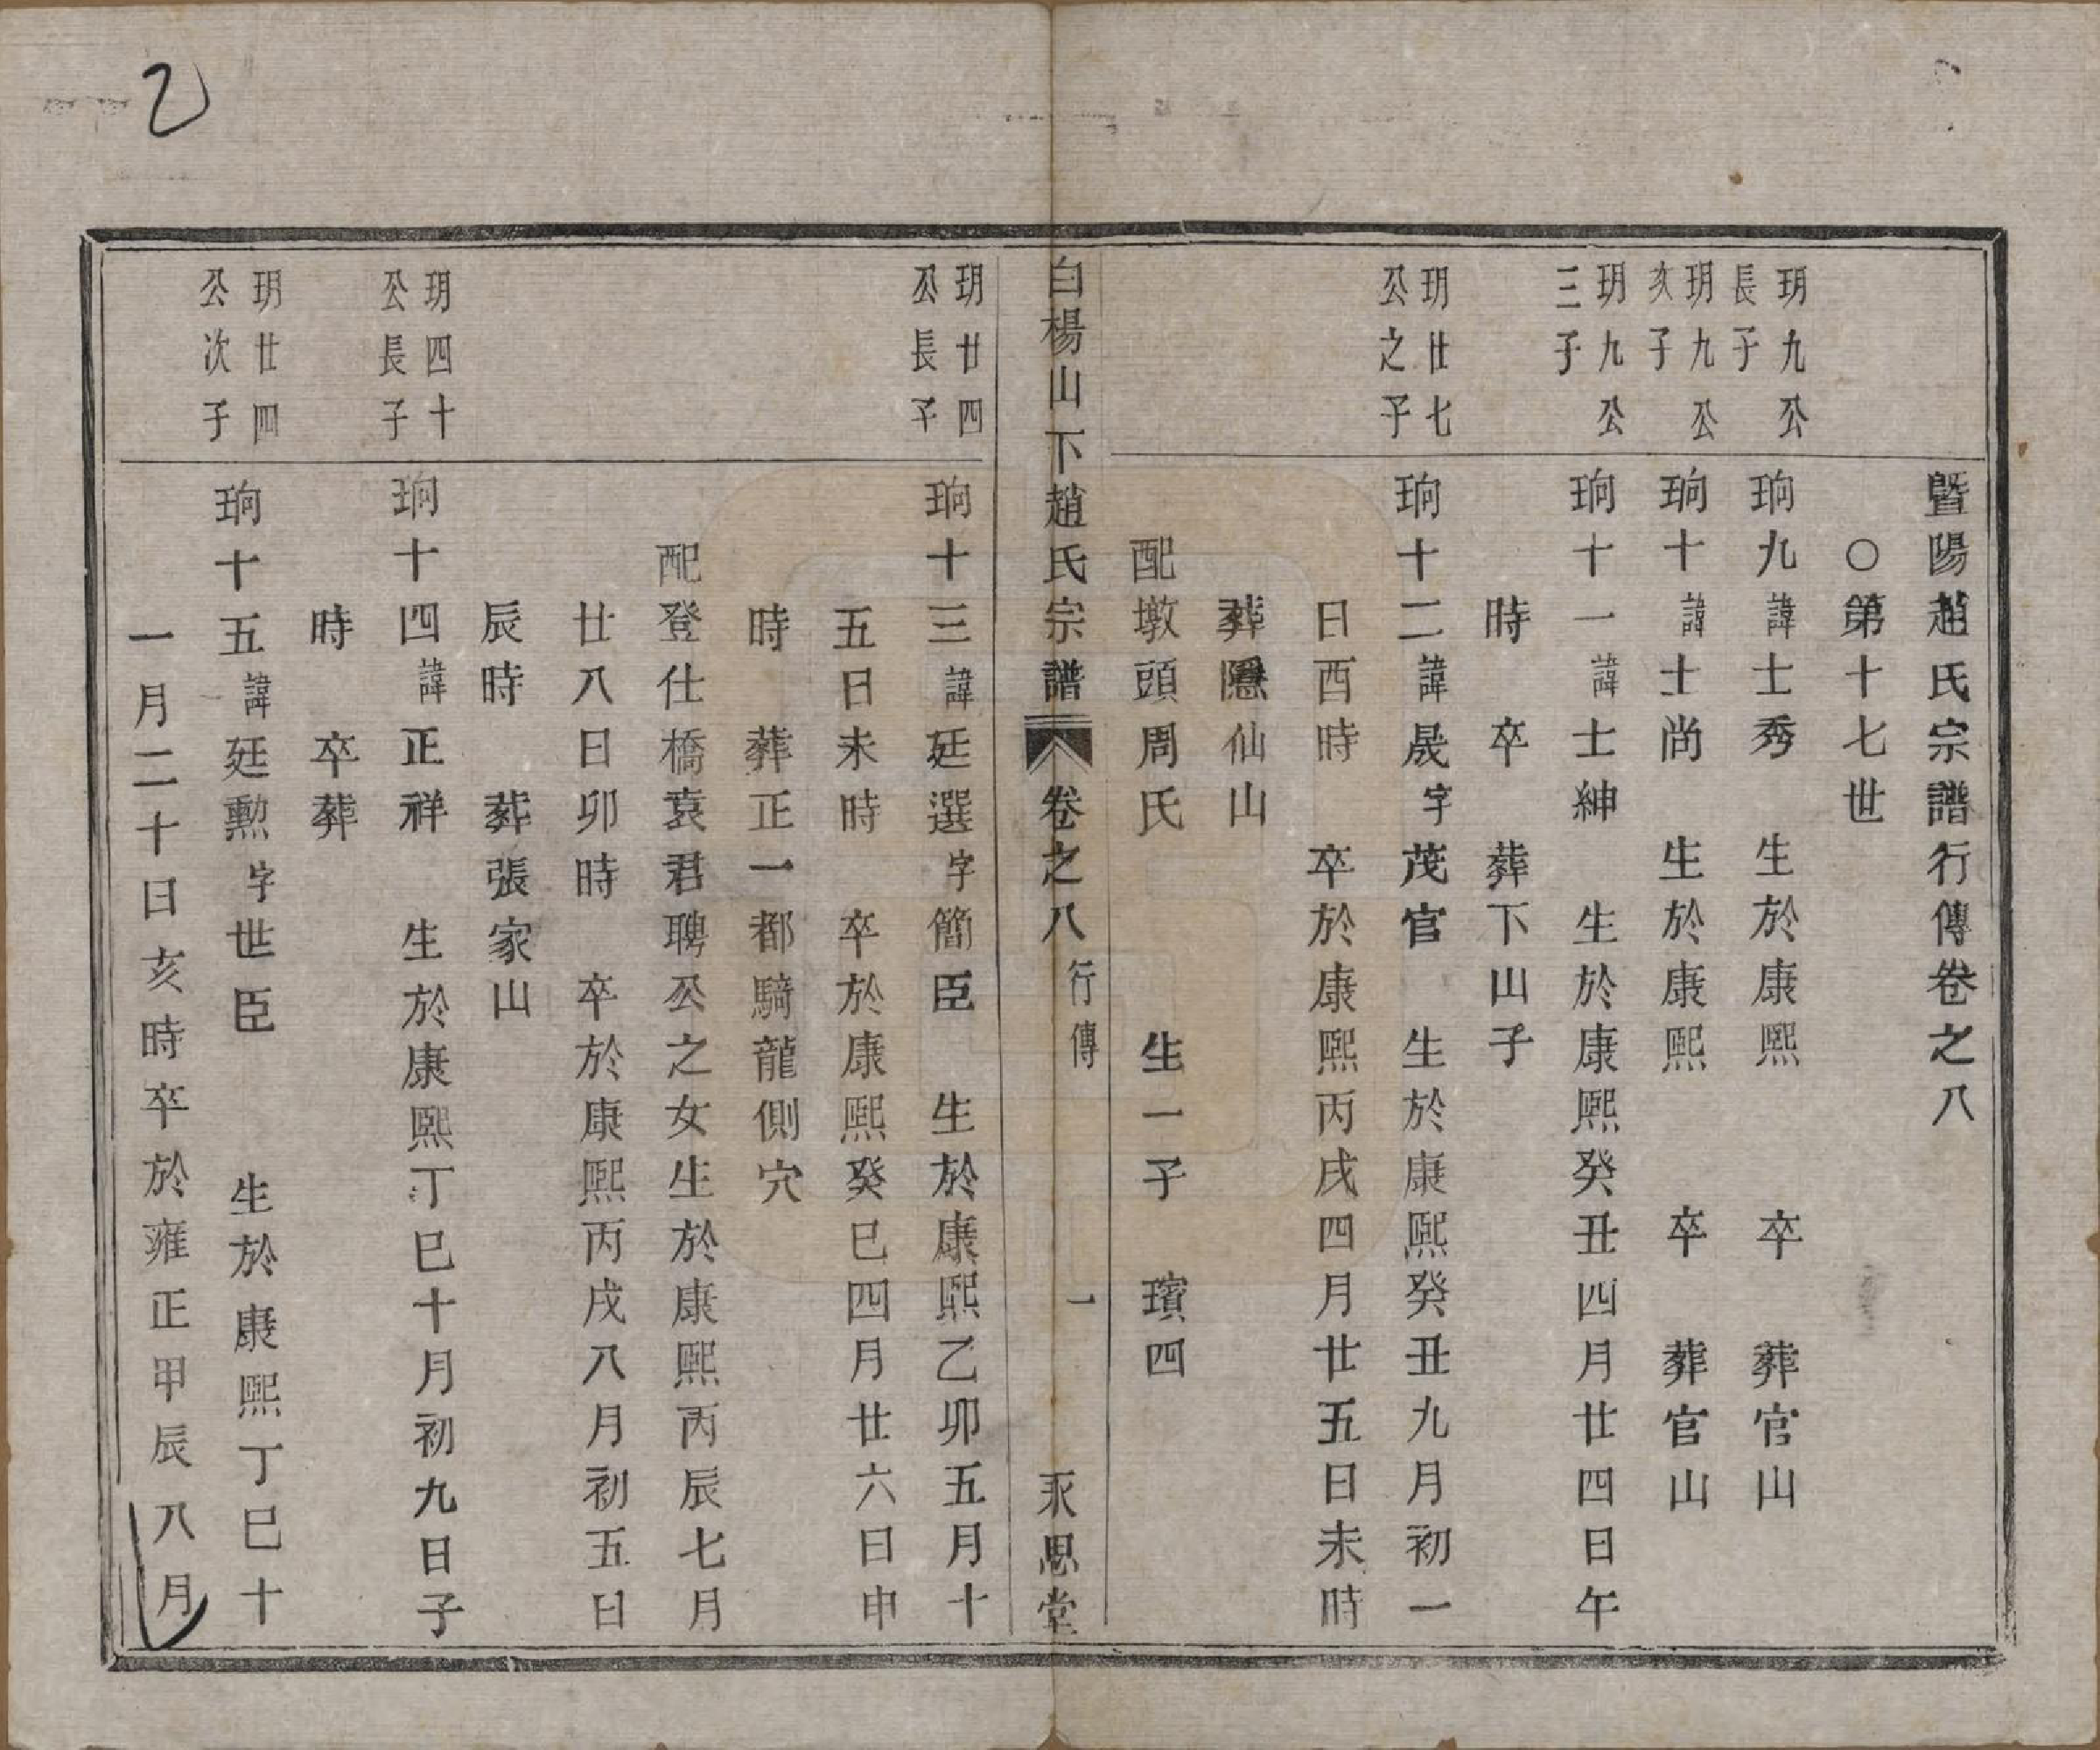 暨陽趙氏宗譜行傳卷之八
〇第十七世
玥九公長子
珦九諱士秀 生於康熙 卒 葬官山
玥九公次子
珦十諱士尚 生於康熙 卒 葬官山
玥九公三子
珦十一諱士紳 生於康熙癸丑四月廿四日午
時 卒 葬下山子
玥廿七公之子
珦十二諱晟字茂官 生於康熙癸丑九月初一
日酉時 卒於康熙丙戌四月廿五日未時
葬隱仙山
配墩頭周氏 生一子 璸四
白楊山下趙氏宗譜 卷之八 行傳 一 永思堂
玥廿四公長子
珦十三諱廷選字簡臣 生於康熙乙卯五月十
五日未時 卒於康熙癸巳四月廿六日申
時 葬正一都騎龍側穴
配登仕橋袁君聘公之女生於康熙丙辰七月
廿八日卯時 卒於康熙丙戌八月初五日
辰時 葬張家山
玥四十公長子
珦十四諱正祥 生於康熙丁巳十月初九日子
時 卒葬
玥廿四公次子
珦十五諱廷勲字世臣 生於康熙丁巳十
一月二十日亥時卒於雍正甲辰八月